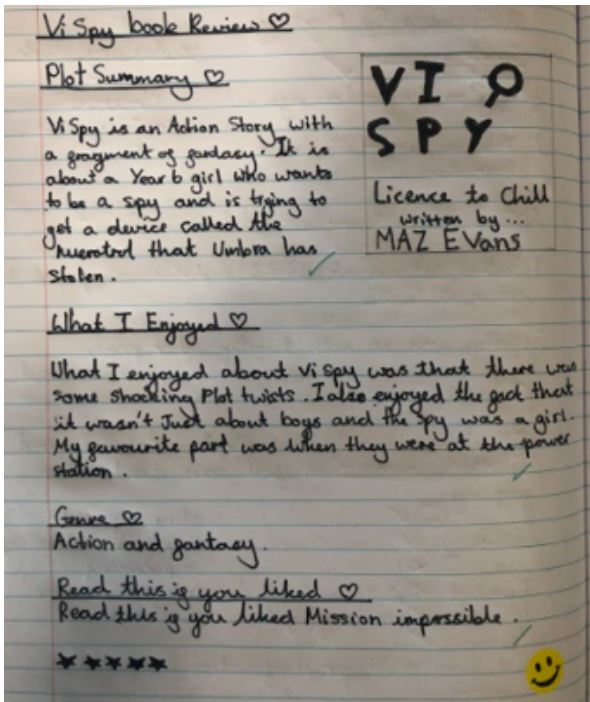 Vi Spy book Review ♡
Plot Summary ♡
Vi Spy is an Action Story with
a fragment of fantasy. It is
about a Year 6 girl who wants
to be a spy and is trying to
get a device called the
that Umbra has
Stolen.
VI
SPY
Licence to Chill
written by...
MAZ EVans
What I Enjoyed ♡
What I enjoyed about Vi spy was that there was
some shocking Plot twists. I also enjoyed the fact that
it wasn't Just about boys and the spy was a girl.
My favourite part was when they were at the power
station.
Genre ♡
Action and fantasy.
Read this if you liked ♡
Read this if you liked Mission impossible.
★★★★★